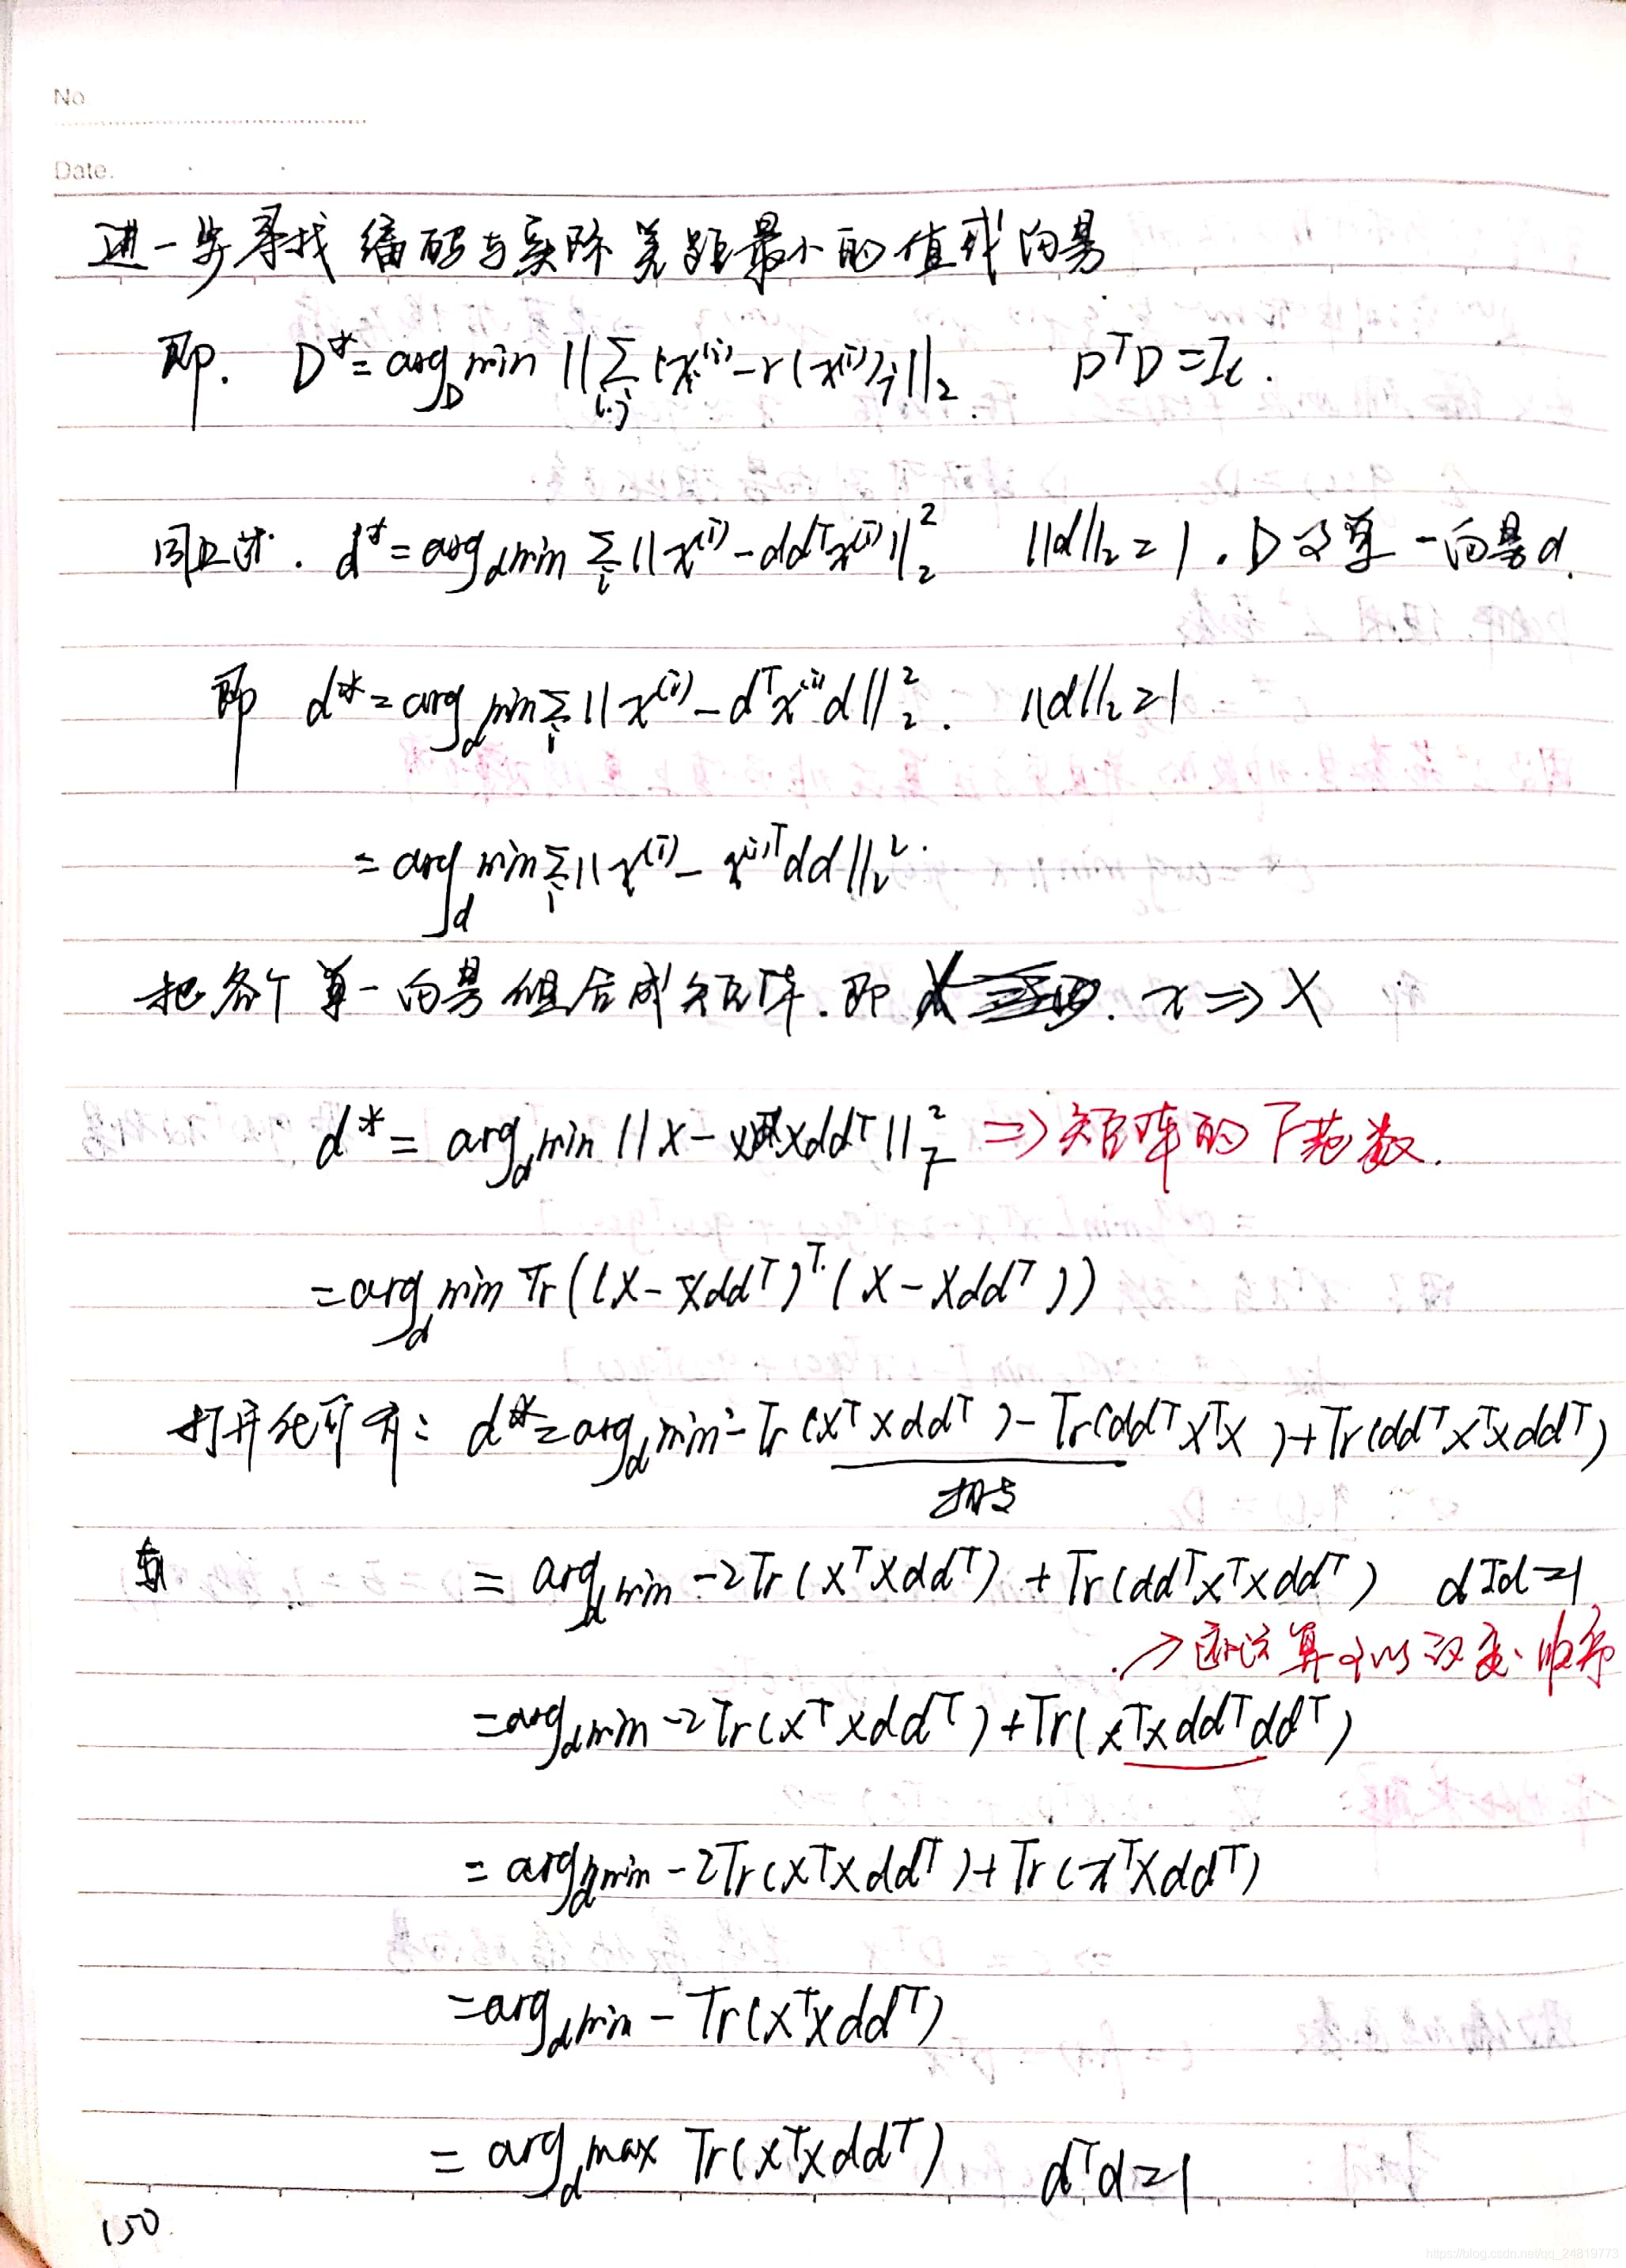 No
Date.
进一步寻找编码与实际差距最小的值或向量
即. D* = arg_D min ||∑_{i,j} (x^(i) - r(x^(i))_j||_2 D^T D = I_l.
d* = arg_d min ∑_i || x^(i) - dd^T x^(i) ||_2^2 ||d||_2 = 1 . D 单一向量d.
即 d* = arg_d min ∑_i || x^(i) - d^T x^(i) d ||_2^2 . ||d||_2 = 1
= arg_d min ∑_i || x^(i) - x^(i)T dd ||_2^2 .
把各个单一向量组合成矩阵. 即 . x ⇒ X
d* = arg_d min || X - Xdd^T ||_F^2 ⇒ 矩阵的F范数.
= arg_d min Tr((X - Xdd^T)^T (X - Xdd^T))
打开化简有: d* = arg_d min - Tr(X^T Xdd^T) - Tr(dd^T X^T X) + Tr(dd^T X^T Xdd^T)
相等
= arg_d min -2Tr(X^T Xdd^T) + Tr(dd^T X^T Xdd^T) d^T d = 1
→ 迹运算可以改变顺序
= arg_d min -2Tr(X^T Xdd^T) + Tr(X^T Xdd^T dd^T)
= arg_d min -2Tr(X^T Xdd^T) + Tr(X^T Xdd^T)
= arg_d min - Tr(X^T Xdd^T)
= arg_d max Tr(X^T Xdd^T) d^T d = 1
150
https://blog.csdn.net/qq_24819773